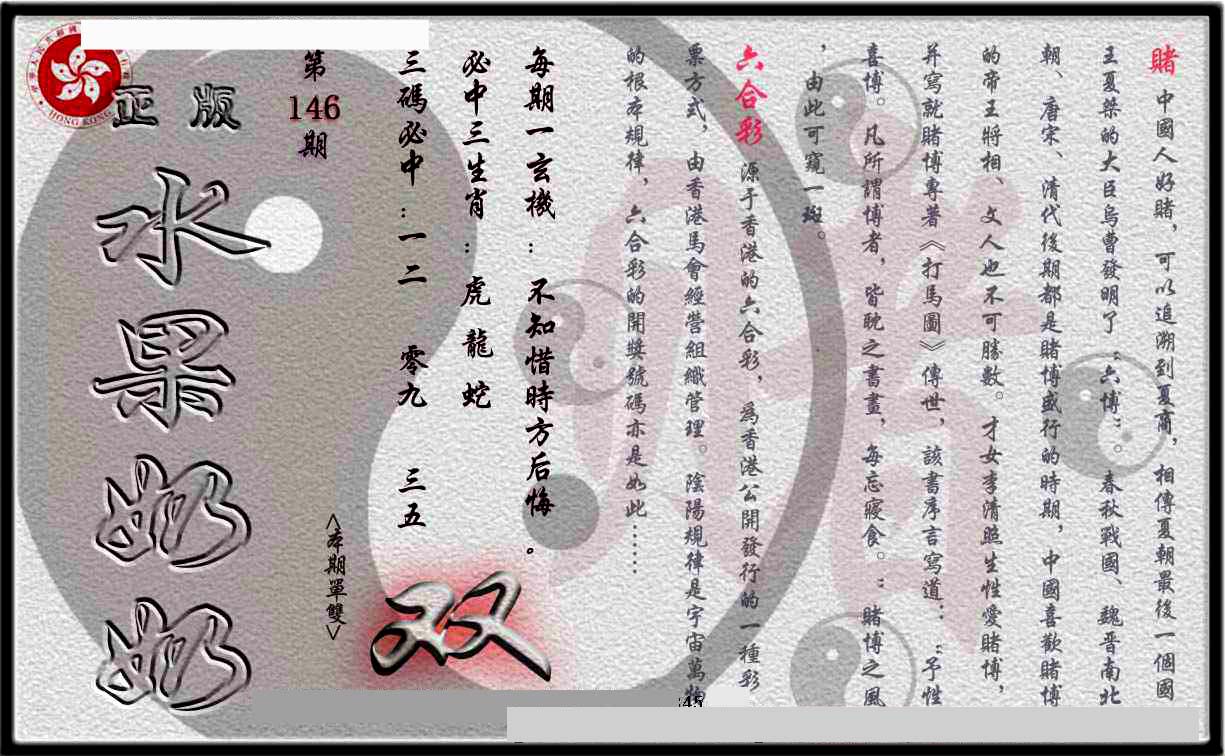 賭 中國人好賭，可以追溯到夏商，相傳夏朝最後一個國
王夏桀的大臣烏曹發明了“六博”。春秋戰國、魏晋南北
朝、唐宋、清代後期都是賭博盛行的時期，中國喜歡賭博
的帝王將相、文人也不可勝數。才女李清照生性愛賭博，
并寫就賭博專著《打馬圖》傳世，該書序言寫道：“予性
喜博。凡所謂博者，皆耽之書畫，每忘寢食。”賭博之風
，由此可窺一斑。
六合彩 源于香港的六合彩，為香港公開發行的一種彩
票方式，由香港馬會經營組織管理。陰陽規律是宇宙萬物
的根本規律，六合彩的開獎號碼亦是如此……
每期一玄機：不知惜時方后悔。
必中三生肖：虎 龍 蛇
三碼必中：一二 零九 三五
<本期單雙>
双
第
146
期
正版
水果奶奶
HONG KONG
:45